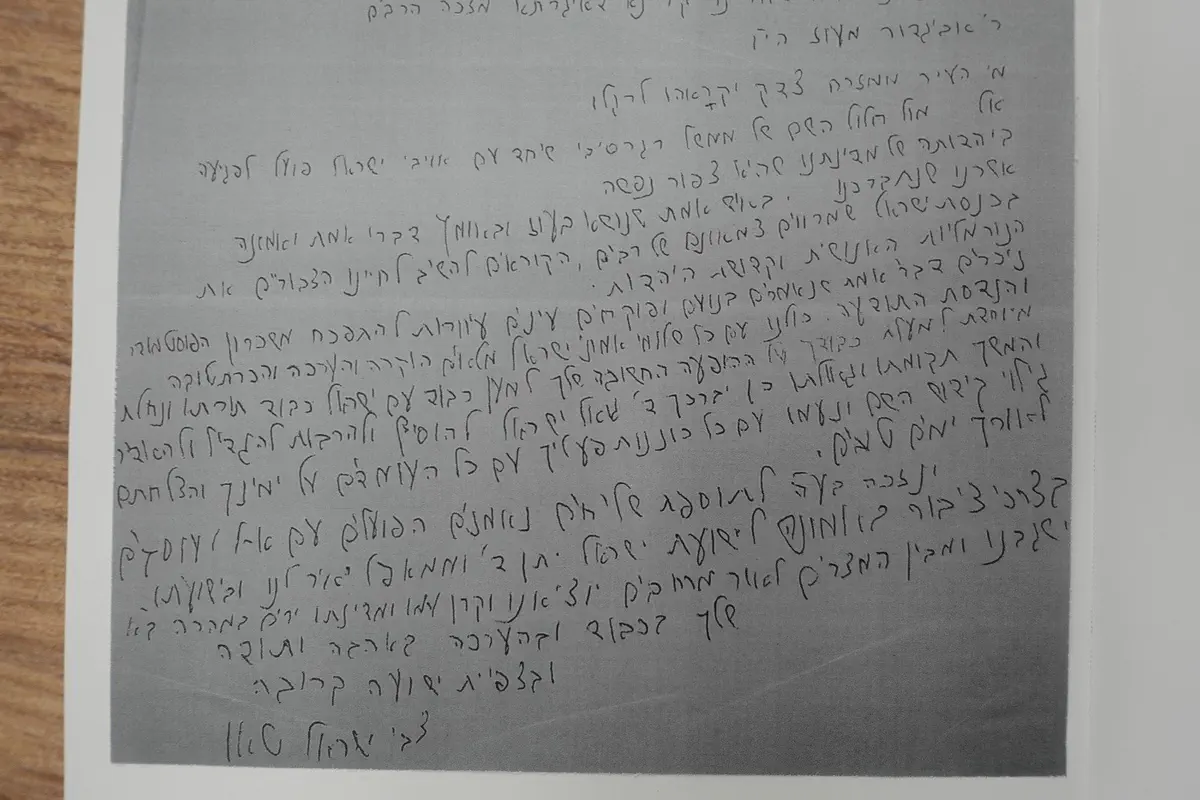 דאיגרתא מזכה הרבים
ר' אביגדור מעוז הי"ו
מי העיר ממזרח צדק יקראהו לרגלו
אל מול חלול השם של ממשל רגרסיבי שיחד עם אויבי ישראל פועל לפגיעה
ביהדותה של מדינתנו שהיא צפור נפשה
אשרנו שנתברכנו באיש אמת שנושא בעוז ובאומץ דברי אמת ואמונה
בכנסת ישראל שמרווים צמאונם של רבים, הקוראים להשיב לחיינו הצבוריים את
הנורמליות האנושית וקדושת היהדות.
ניכרים דברי אמת שנאמרים בנועם ופוקחים עינים עיורות להתפכח משכרון הפוסטמודר'
והנדסת התודעה. כולנו עם כל שלומי אמוני ישראל מלאים הוקרה והערכה והכרת טובה
מיוחדת למעלת כבודך על ההופעה החשובה שלך למען כבוד עם ישראל כבוד תורתו ונחלת
והמשך תקומתו וגאולתו כן יברכך ד' גואל ישראל להוסיף ולהרבות להגדיל ולהאדיר
גילוי קידוש השם ונעמו עם כל כוננות פעליך עם כל העומדים על ימינך והצלחתם
לאורך ימים טובים.
ונזכה בע"ה לתוספת שליחים נאמנים הפועלים עם א-ל ועוסקים
בצרכי ציבור באמונה לישועת ישראל יתן ד' וממאפל יאיר לנו ובישועתו
ישגבנו ומבין המצרים לאויר מרחבים יוציאנו וקרן עמו ומדינתו ירים במהרה בא'
שלך בכבוד ובהערכה באהבה ותודה
ובצפית ישועה קרובה
צבי ישראל טאו